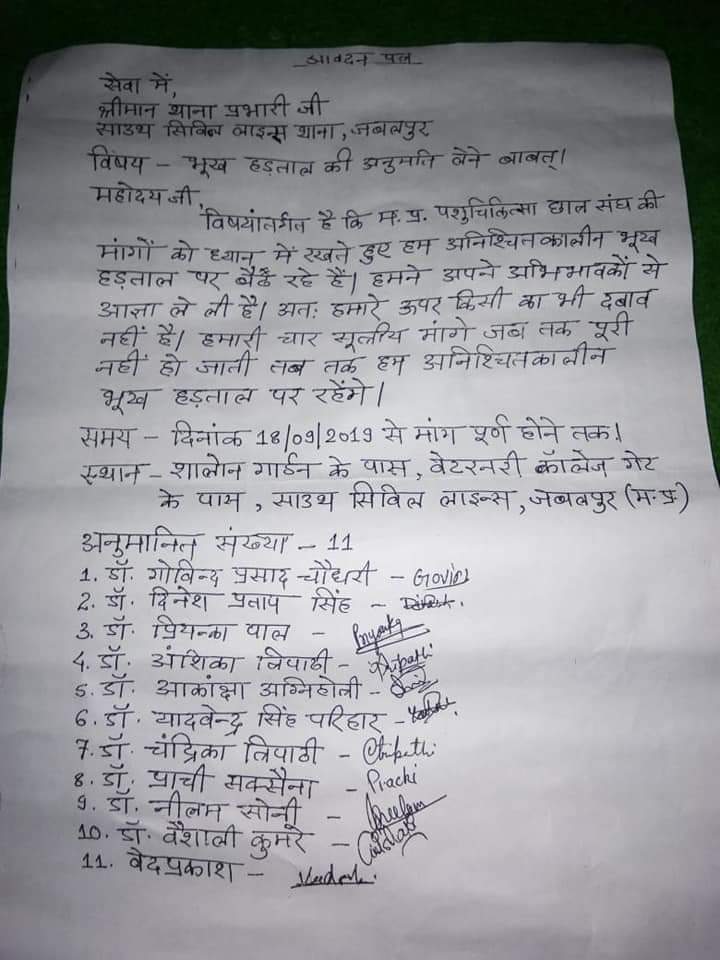 आवदन पत्र
सेवा में,
श्रीमान थाना प्रभारी जी
साउथ सिविल लाइन्स थाना, जबलपुर
विषय - भूख हड़ताल की अनुमति लेने बाबत्।
महोदय जी,
विषयांतर्गत है कि म.प्र. पशुचिकित्सा छात्र संघ की
मांगों को ध्यान में रखते हुए हम अनिश्चितकालीन भूख
हड़ताल पर बैठे रहे हैं। हमने अपने अभिभावकों से
आज्ञा ले ली है। अतः हमारे ऊपर किसी का भी दबाव
नहीं है। हमारी चार सूत्रीय मांगे जब तक पूरी
नहीं हो जाती तब तक हम अनिश्चितकालीन
भूख हड़ताल पर रहेंगे।
समय - दिनांक 18/09/2019 से मांग पूर्ण होने तक।
स्थान - शालोन गार्डन के पास, वेटरनरी कॉलेज गेट
के पास, साउथ सिविल लाइन्स, जबलपुर (म.प्र.)
अनुमानित संख्या - 11
1. डॉ. गोविन्द प्रसाद चौधरी - Govind
2. डॉ. दिनेश प्रताप सिंह -
3. डॉ. प्रियन्का पाल - Priyanka
4. डॉ. अंशिका त्रिपाठी - Tripathi
5. डॉ. आकांक्षा अग्निहोत्री -
6. डॉ. यादवेन्द्र सिंह परिहार -
7. डॉ. चंद्रिका त्रिपाठी - Ctripathi
8. डॉ. प्राची सक्सैना - Prachi
9. डॉ. नीलम सोनी - Neelam
10. डॉ. वैशाली कुमरे -
11. वेदप्रकाश -